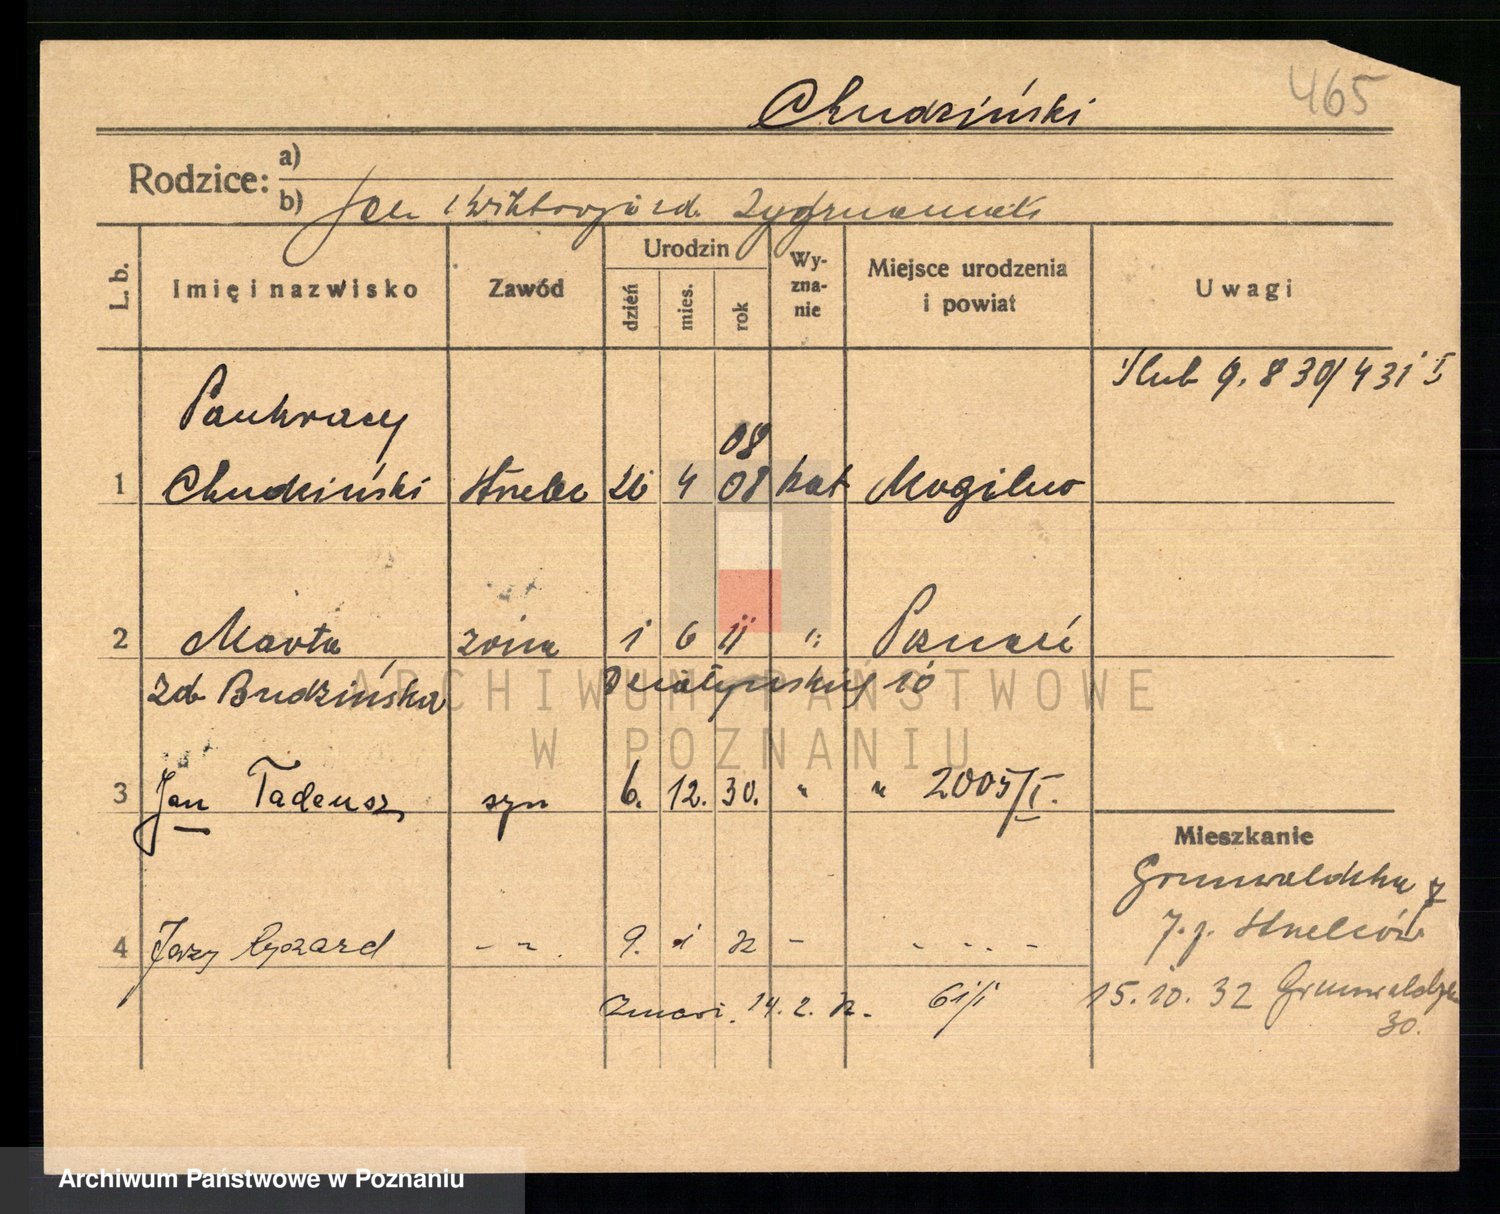 465
Chudziński
Rodzice: a)
b) Jan i Wiktorja zd.
L. b. Imię i nazwisko Zawód Urodzin dzień mies. rok Wy-zna-nie Miejsce urodzenia i powiat Uwagi
Ślub 9. 8 30/431 I
Pankracy
08
1 Chudziński 4 08 kat Mogilno
2 Marta żona 1 6 11 " Poznań
zd Budzińska Działyńskich 10
ARCHIWUM PAŃSTWOWE
W POZNANIU
3 Jan Tadeusz syn 6. 12. 30. " " 2005/I.
Mieszkanie
Grunwaldzka
4 Jerzy Ryszard - " . 9. i -
15. 10. 32 Grunwaldzka
zmarł 14. 2. 61/I
30.
Archiwum Państwowe w Poznaniu